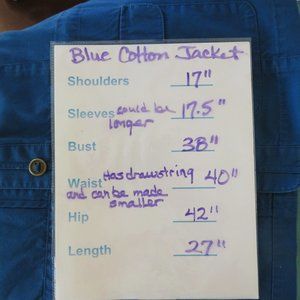 Blue Cotton Jacket
Shoulders 17"
Sleeves could be longer 17.5"
Bust 38"
Waist Has drawstring and can be made smaller 40"
Hip 42"
Length 27"